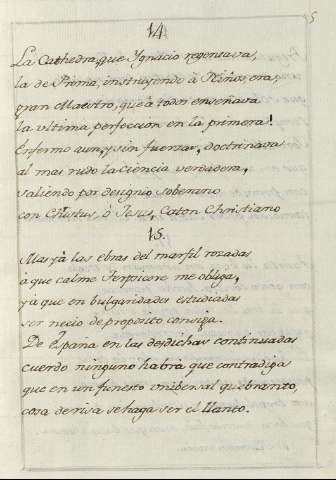 5
14.
La Cathedra, que Ygnacio regentava,
la de Prima, instruyendo à Niños, era;
gran Maestro, que à todos enseñava
la ultima perfeccion en la primera!
Enfermo aun, y sin fuerzas, doctrinava
al mas rudo la Ciencia verdadera,
saliendo por designio soberano
con Christus, ò Jesus, Caton Christiano
15.
Mas yà las ebras del marfil rozadas
à que calme Terpsicore me obliga,
yà que en bulgaridades estudiadas
ser necio de proposito consiga.
De España en las desdichas continuadas
cuerdo ninguno habrà que contradiga
que en un funesto unibersal quebranto,
cosa de risa se haga ser el llanto.